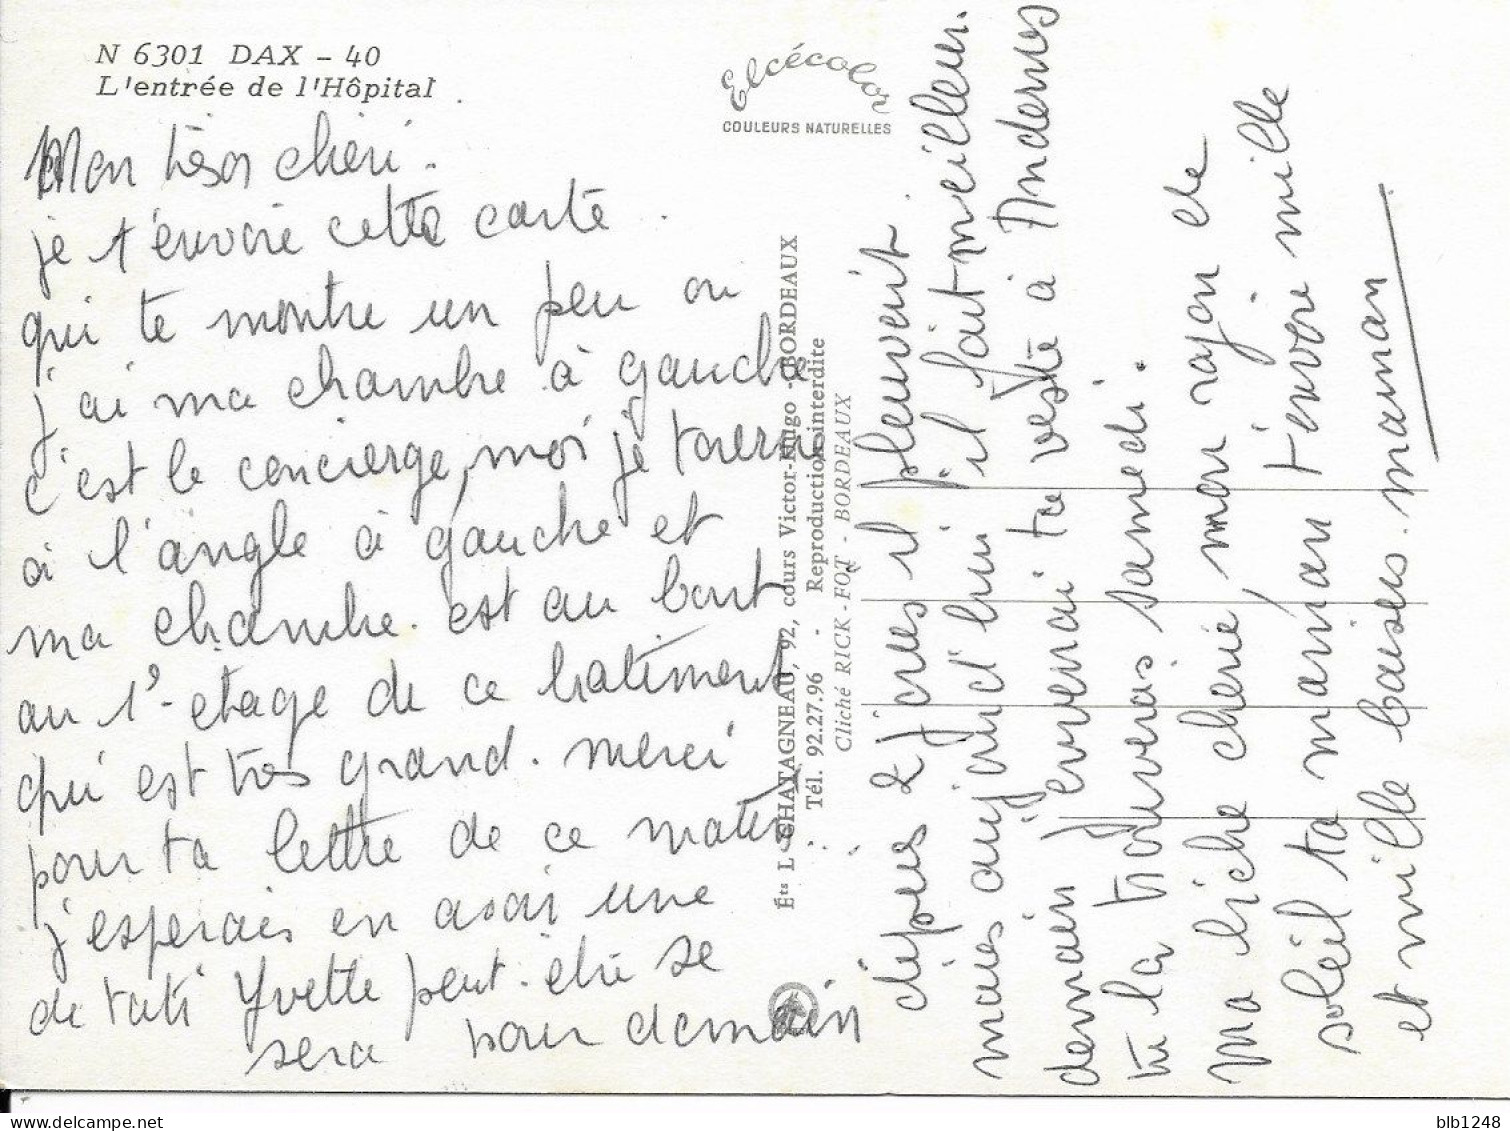 N 6301 DAX - 40
L'entrée de l'Hôpital
Elcécolor
COULEURS NATURELLES
Mon trèsor chèri.
je t'envoie cette carte
qui te montre un peu ou
j'ai ma chambre à gauche
c'est le concierge, moi je tourne
à l'angle à gauche et
ma chambre est au bout
au 1°- etage de ce batiment
qui est tres grand. merci
pour ta lettre de ce matin
j'esperais en avoir une
de tati Yvette peut-etre se
sera pour demain
Éts L. CHATAGNEAU, 92, cours Victor-Hugo - BORDEAUX
Tél. 92.27.96 - Reproduction interdite
Cliché RICK - FOT - BORDEAUX
dèpuis 2 jours il pleuvait.
mais aujourd'hui il fait meilleur.
demain j'enverrai tu veste à Andernos
tu la trouveras samedi.
Ma biche cherie, mon rayon de
soleil ta maman t'envoie mille
et mille baisers. maman
blb1248